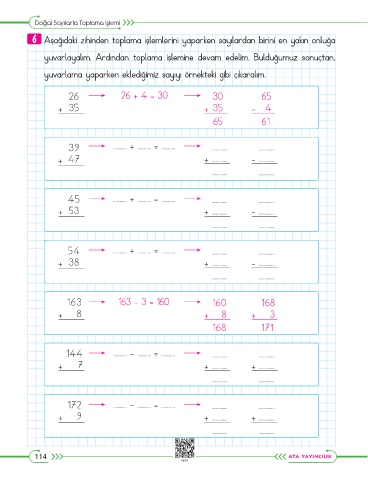 Doğal Sayılarla Toplama İşlemi
6 Aşağıdaki zihinden toplama işlemlerini yaparken sayılardan birini en yakın onluğa
yuvarlayalım. Ardından toplama işlemine devam edelim. Bulduğumuz sonuçtan,
yuvarlama yaparken eklediğimiz sayıyı örnekteki gibi çıkaralım.
26 → 26 + 4 = 30 30 65
+ 35 + 35 - 4
65 61
39 → ...... + ...... = ...... → ...... ......
+ 47 + ...... - ......
...... ......
45 → ...... + ...... = ...... → ...... ......
+ 53 + ...... - ......
...... ......
54 → ...... + ...... = ...... → ...... ......
+ 38 + ...... - ......
...... ......
163 → 163 - 3 = 160 → 160 168
+ 8 + 8 + 3
168 171
144 → ...... - ...... = ...... → ...... ......
+ 7 + ...... + ......
...... ......
172 → ...... - ...... = ...... → ...... ......
+ 9 + ...... + ......
...... ......
114
ATA YAYINCILIK